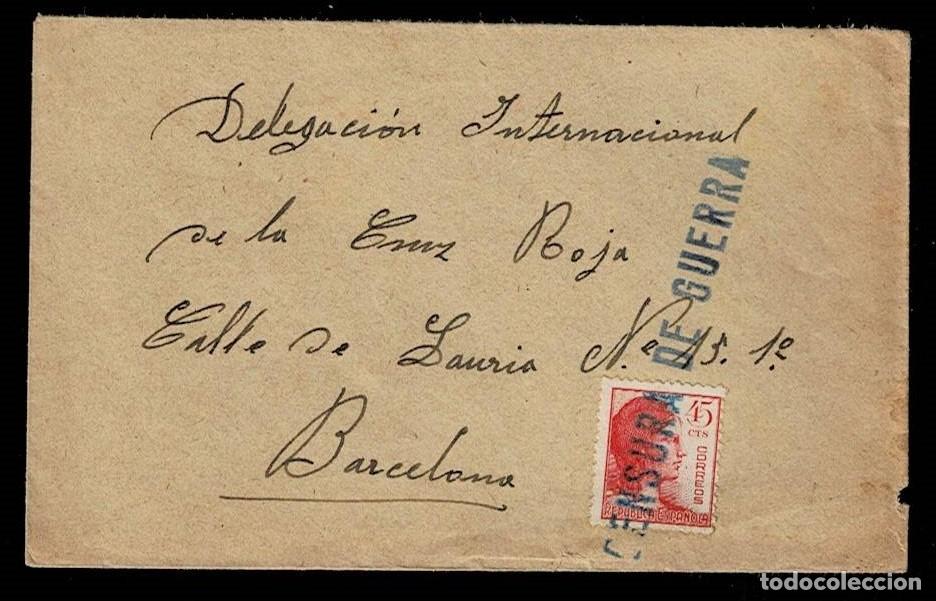 Delegación Internacional
de la Cruz Roja
Calle de Lauria Nº 45. 1º
Barcelona
CENSURA DE GUERRA
45
CTS
CORREOS
REPUBLICA ESPAÑOLA
todocoleccion